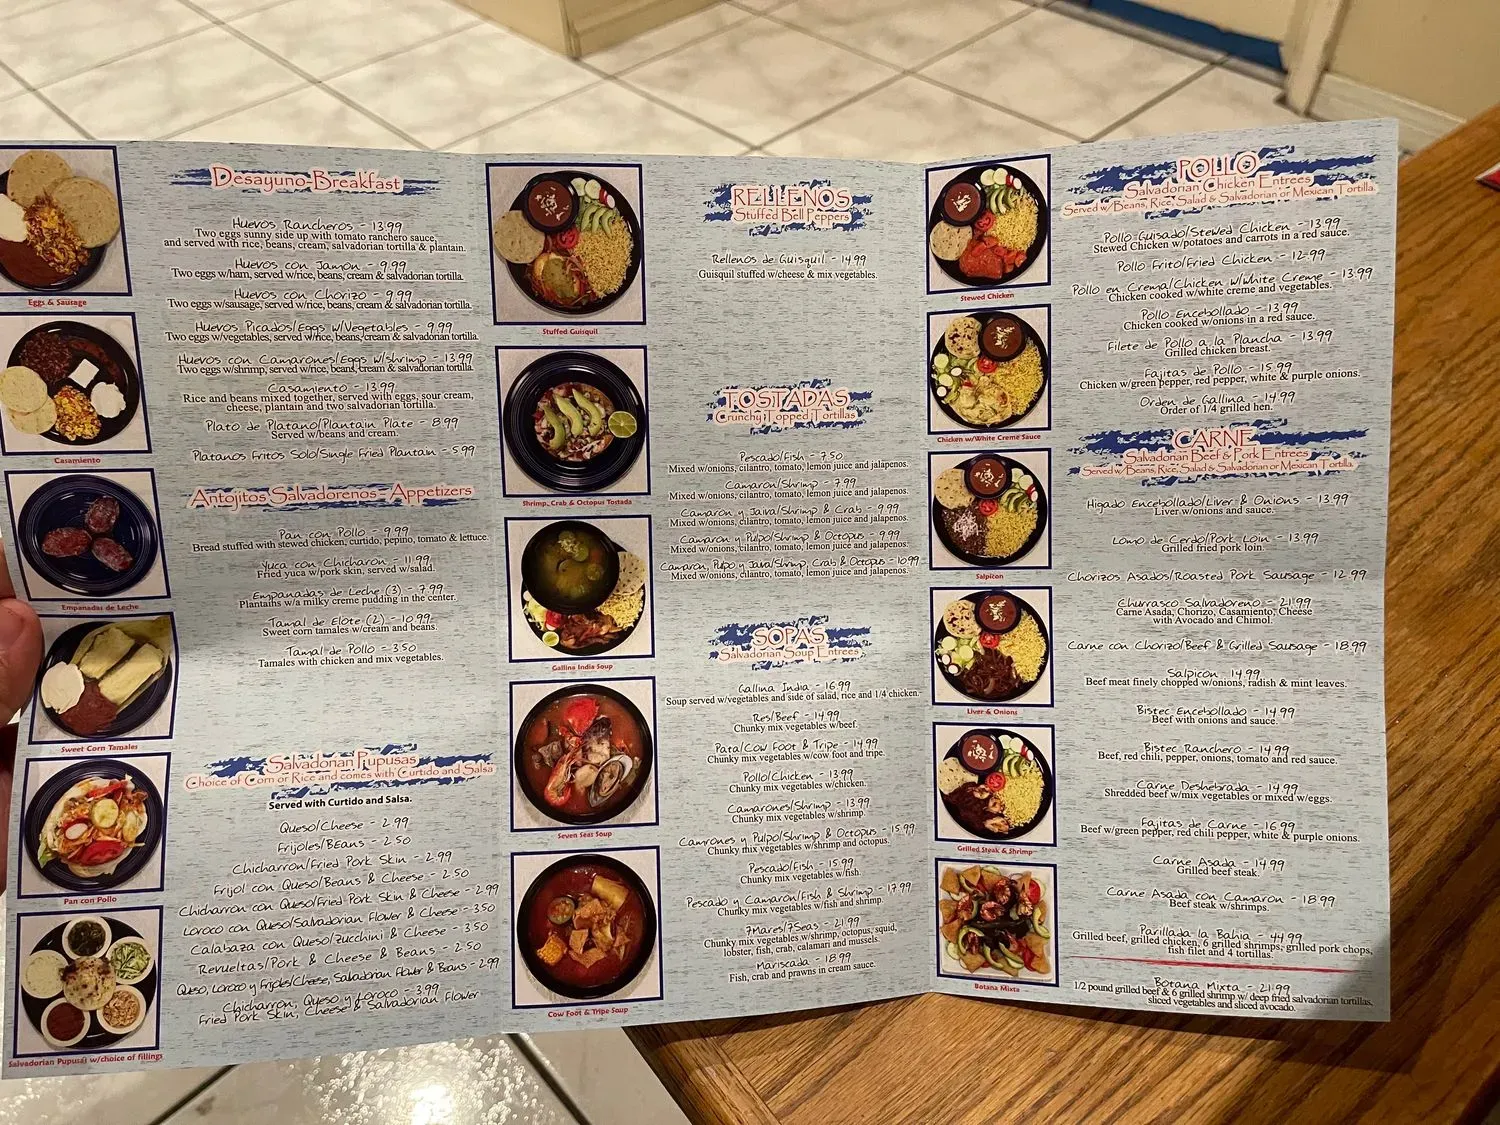 Desayuno-Breakfast
Huevos Rancheros - 13.99
Two eggs sunny side up with tomato ranchero sauce,
and served with rice, beans, cream, salvadorian tortilla & plantain.
Huevos con Jamon - 9.99
Two eggs w/ham, served w/rice, beans, cream & salvadorian tortilla.
Huevos con Chorizo - 9.99
Two eggs w/sausage, served w/rice, beans, cream & salvadorian tortilla.
Huevos Picados/Eggs w/Vegetables - 9.99
Two eggs w/vegetables, served w/rice, beans, cream & salvadorian tortilla.
Huevos con Camarones/Eggs w/shrimp - 13.99
Two eggs w/shrimp, served w/rice, beans, cream & salvadorian tortilla.
Casamiento - 13.99
Rice and beans mixed together, served with eggs, sour cream,
cheese, plantain and two salvadorian tortilla.
Plato de Platano/Plantain Plate - 8.99
Served w/beans and cream.
Platanos Fritos Solo/Single Fried Plantain - 5.99
Antojitos Salvadorenos - Appetizers
Pan con Pollo - 9.99
Bread stuffed with stewed chicken, curtido, pepino, tomato & lettuce.
Yuca con Chicharon - 11.99
Fried yuca w/pork skin, served w/salad.
Empanadas de Leche (3) - 7.99
Plantaihs w/a milky creme pudding in the center.
Tamal de Elote (2) - 10.99
Sweet corn tamales w/cream and beans.
Tamal de Pollo - 3.50
Tamales with chicken and mix vegetables.
Salvadorian Pupusas
Choice of Corn or Rice and comes with Curtido and Salsa
Served with Curtido and Salsa.
Queso/Cheese - 2.99
Frijoles/Beans - 2.50
Chicharron/Fried Pork Skin - 2.99
Frijol con Queso/Beans & Cheese - 2.50
Chicharron con Queso/Fried Pork Skin & Cheese - 2.99
Loroco con Queso/Salvadorian Flower & Cheese - 3.50
Calabaza con Queso/Zucchini & Cheese - 3.50
Revueltas/Pork & Cheese & Beans - 2.50
Queso, Loroco y Frijoles/Cheese, Salvadorian Flower & Beans - 2.99
Chicharron, Queso y Loroco - 3.99
Fried Pork Skin, Cheese & Salvadorian Flower
Eggs & Sausage
Casamiento
Empanadas de Leche
Sweet Corn Tamales
Pan con Pollo
Salvadorian Pupusas w/choice of fillings
RELLENOS
Stuffed Bell Peppers
Rellenos de Guisquil - 14.99
Guisquil stuffed w/cheese & mix vegetables.
TOSTADAS
Crunchy Topped Tortillas
Pescado/Fish - 7.50
Mixed w/onions, cilantro, tomato, lemon juice and jalapenos.
Camaron/Shrimp - 7.99
Mixed w/onions, cilantro, tomato, lemon juice and jalapenos.
Camaron y Jaiva/Shrimp & Crab - 9.99
Mixed w/onions, cilantro, tomato, lemon juice and jalapenos.
Camaron y Pulpo/Shrimp & Octopus - 9.99
Mixed w/onions, cilantro, tomato, lemon juice and jalapenos.
Camaron, Pulpo y Jaiva/Shrimp, Crab & Octopus - 10.99
Mixed w/onions, cilantro, tomato, lemon juice and jalapenos.
SOPAS
Salvadorian Soup Entrees
Gallina India - 16.99
Soup served w/vegetables and side of salad, rice and 1/4 chicken.
Res/Beef - 14.99
Chunky mix vegetables w/beef.
Pata/Cow Foot & Tripe - 14.99
Chunky mix vegetables w/cow foot and tripe.
Pollo/Chicken - 13.99
Chunky mix vegetables w/chicken.
Camarones/Shrimp - 13.99
Chunky mix vegetables w/shrimp.
Camrones y Pulpo/Shrimp & Octopus - 15.99
Chunky mix vegetables w/shrimp and octopus.
Pescado/Fish - 15.99
Chunky mix vegetables w/fish.
Pescado y Camaron/Fish & Shrimp - 17.99
Chunky mix vegetables w/fish and shrimp.
7Mares/7Seas - 21.99
Chunky mix vegetables w/shrimp, octopus, squid,
lobster, fish, crab, calamari and mussels.
Mariscada - 18.99
Fish, crab and prawns in cream sauce.
Stuffed Guisquil
Shrimp, Crab & Octopus Tostada
Gallina India Soup
Seven Seas Soup
Cow Foot & Tripe Soup
POLLO
Salvadorian Chicken Entrees
Served w/Beans, Rice, Salad & Salvadorian or Mexican Tortilla.
Pollo Guisado/Stewed Chicken - 13.99
Stewed Chicken w/potatoes and carrots in a red sauce.
Pollo Frito/Fried Chicken - 12.99
Pollo en Crema/Chicken w/White Creme - 13.99
Chicken cooked w/white creme and vegetables.
Pollo Encebollado - 13.99
Chicken cooked w/onions in a red sauce.
Filete de Pollo a la Plancha - 13.99
Grilled chicken breast.
Fajitas de Pollo - 15.99
Chicken w/green pepper, red pepper, white & purple onions.
Orden de Gallina - 14.99
Order of 1/4 grilled hen.
CARNE
Salvadorian Beef & Pork Entrees
Served w/Beans, Rice, Salad & Salvadorian or Mexican Tortilla.
Higado Encebollado/Liver & Onions - 13.99
Liver w/onions and sauce.
Lomo de Cerdo/Pork Loin - 13.99
Grilled fried pork loin.
Chorizos Asados/Roasted Pork Sausage - 12.99
Churrasco Salvadoreno - 21.99
Carne Asada, Chorizo, Casamiento, Cheese
with Avocado and Chimol.
Carne con Chorizo/Beef & Grilled Sausage - 18.99
Salpicon - 14.99
Beef meat finely chopped w/onions, radish & mint leaves.
Bistec Encebollado - 14.99
Beef with onions and sauce.
Bistec Ranchero - 14.99
Beef, red chili, pepper, onions, tomato and red sauce.
Carne Deshebrada - 14.99
Shredded beef w/mix vegetables or mixed w/eggs.
Fajitas de Carne - 16.99
Beef w/green pepper, red chili pepper, white & purple onions.
Carne Asada - 14.99
Grilled beef steak.
Carne Asada con Camaron - 18.99
Beef steak w/shrimps.
Parillada la Bahia - 44.99
Grilled beef, grilled chicken, 6 grilled shrimps, grilled pork chops,
fish filet and 4 tortillas.
Botana Mixta - 21.99
1/2 pound grilled beef & 6 grilled shrimp w/ deep fried salvadorian tortillas,
sliced vegetables and sliced avocado.
Stewed Chicken
Chicken w/White Creme Sauce
Salpicon
Liver & Onions
Grilled Steak & Shrimp
Botana Mixta